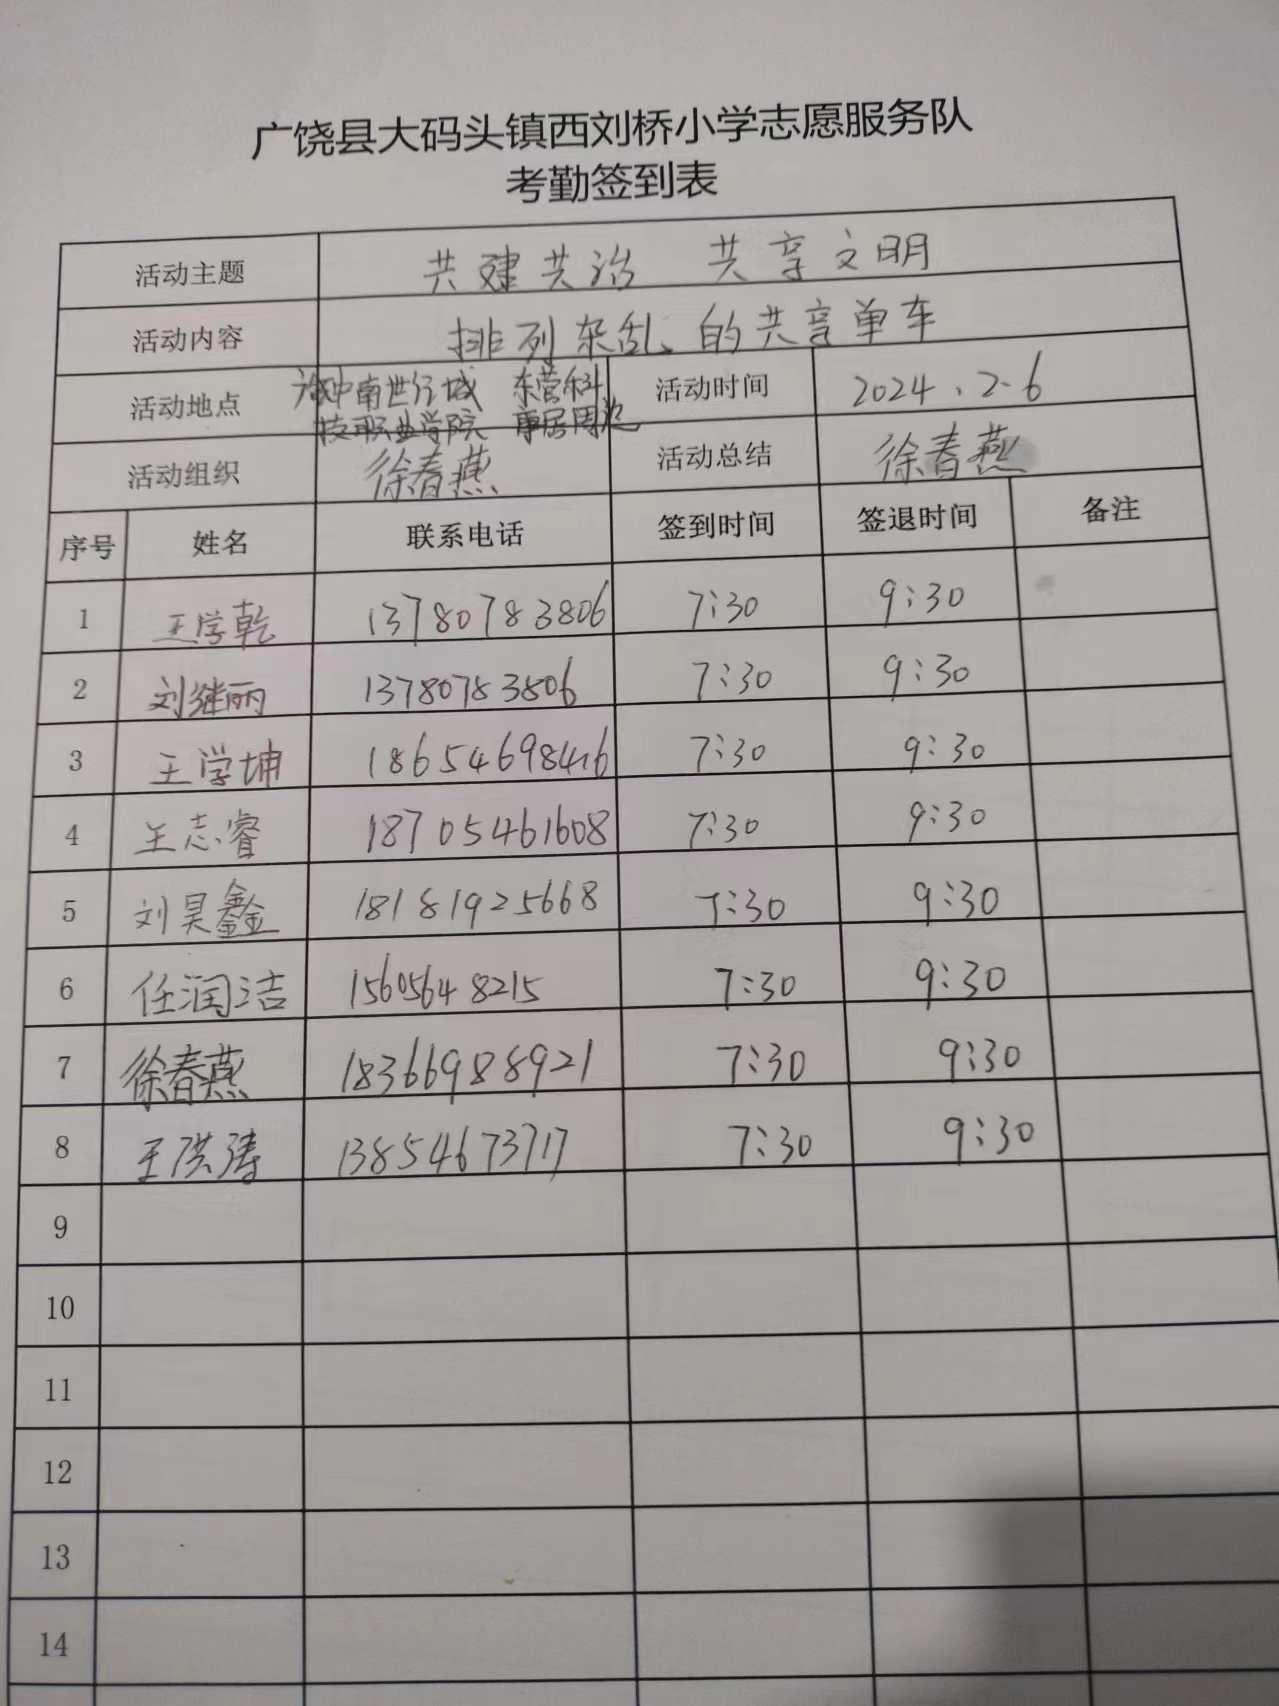 广饶县大码头镇西刘桥小学志愿服务队
考勤签到表
活动主题 共建共治 共享文明
活动内容 排列杂乱的共享单车
活动地点 中南世纪城 东营科 活动时间 2024.2.6
技职业学院 康居周边
活动组织 徐春燕 活动总结 徐春燕
序号 姓名 联系电话 签到时间 签退时间 备注
1 王学乾 13780783806 7:30 9:30
2 刘继丽 13780783806 7:30 9:30
3 王学坤 18654698416 7:30 9:30
4 王志睿 18705461608 7:30 9:30
5 刘昊鑫 18181925668 7:30 9:30
6 任润洁 15605648215 7:30 9:30
7 徐春燕 18366988921 7:30 9:30
8 王洪涛 13854673717 7:30 9:30
9
10
11
12
13
14